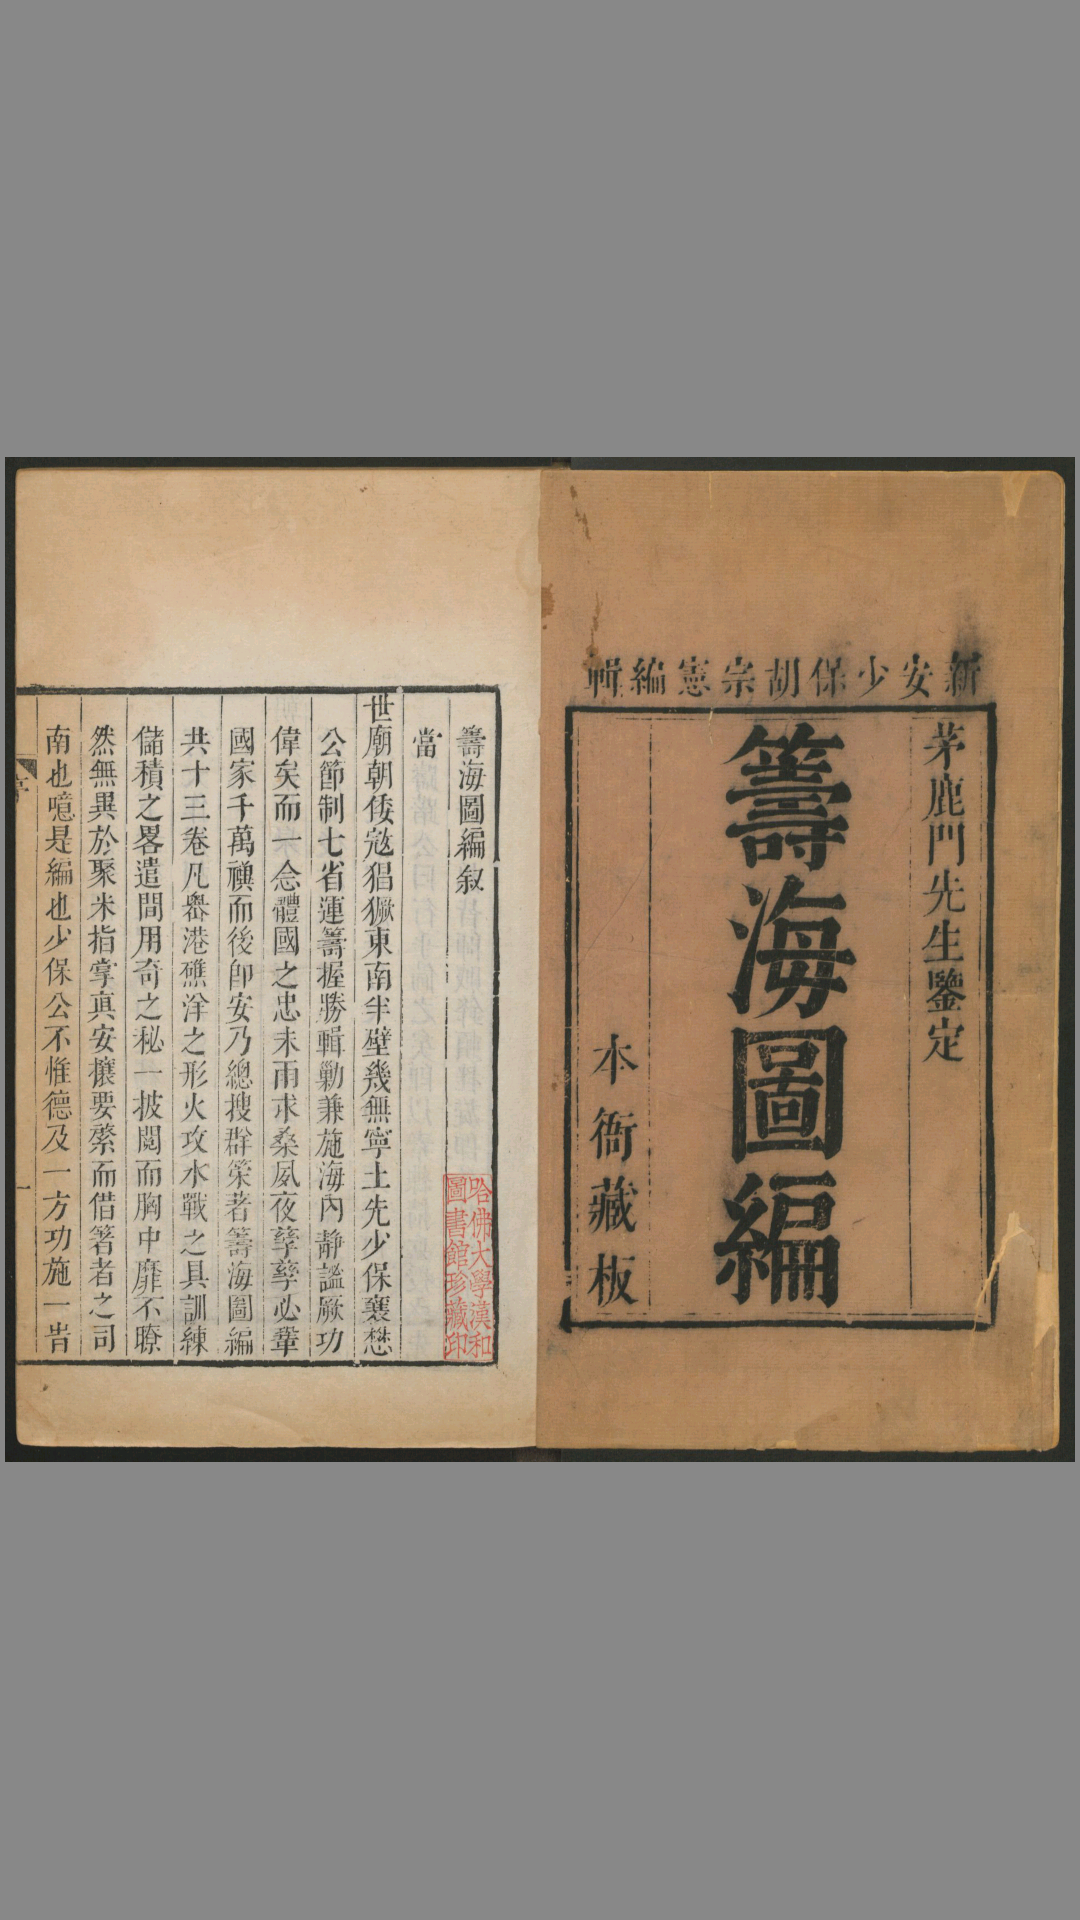 新安少保胡宗憲編輯
茅鹿門先生鑒定
籌海圖編
本衙藏板
籌海圖編叙
當
世廟朝倭寇猖獗東南半壁幾無寧土先少保襄懋
公節制七省運籌握勝輯勦兼施海內靜謐厥功
偉矣而一念體國之忠未雨求桑夙夜孳孳必鞏
國家千萬禩而後卽安乃總搜群策著籌海圖編
共十三卷凡嶴港礁洋之形火攻水戰之具訓練
儲積之畧遣間用奇之秘一披閱而胸中靡不瞭
然無異於聚米指掌真安攘要䇿而借箸者之司
南也噫是編也少保公不惟德及一方功施一旹
哈佛大學漢和
圖書館珍藏印
序
一